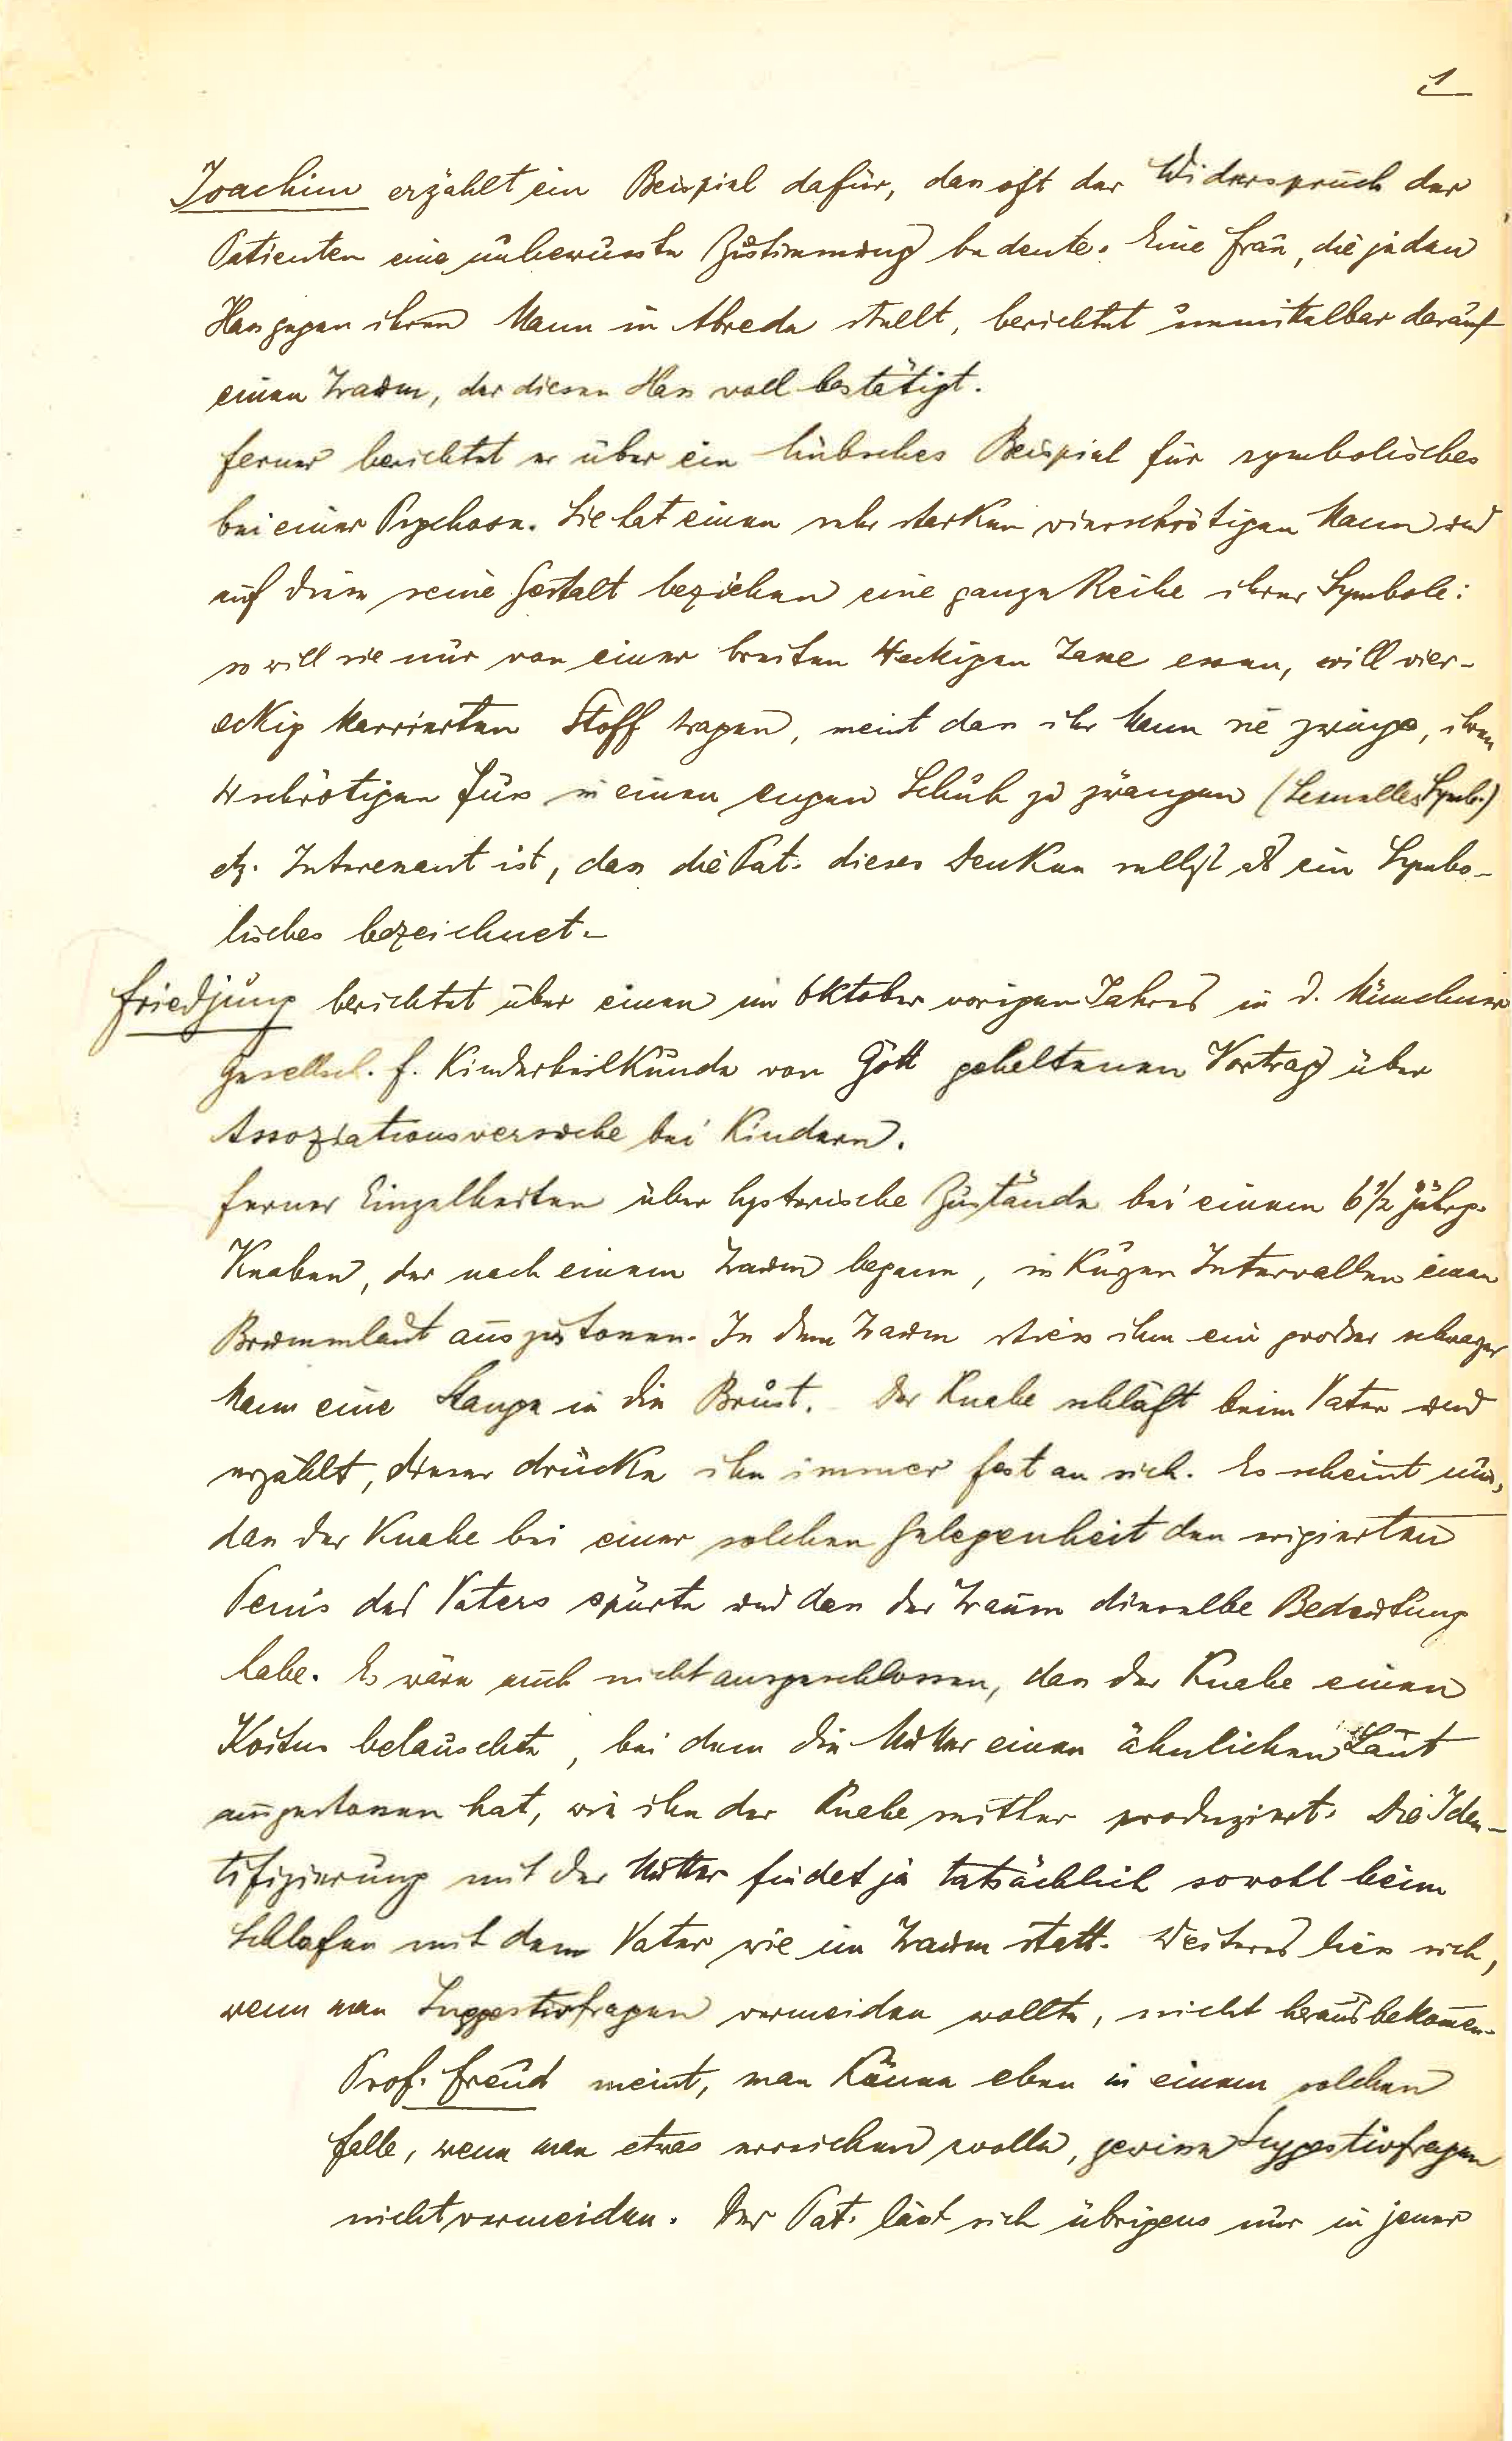 1
Joachim erzählt ein Beispiel dafür, dass oft der Widerspruch der
Patienten eine unbewusste Zustimmung bedeute. Eine Frau, die jeden
Hass gegen ihren Mann in Abrede stellt, berichtet unmittelbar darauf
einen Traum, der diesen Hass voll bestätigt.
Ferner berichtet er über ein hübsches Beispiel für symbolisches
bei einer Psychose. Sie hat einen sehr starken vierschrötigen Mann und
auf diese seine Gestalt beziehen eine ganze Reihe ihrer Symbole:
so will sie nur von einer breiten 4eckigen Tasse essen, will vier-
eckig karrierten Stoff tragen, meint dass ihr Mann sie zwinge, ihren
4schrötigen Fuss in einen engen Schuh zu zwängen (Sexuelles Symb.)
etz. Interessant ist, dass die Pat. dieses Denken selbst als ein Symbo-
lisches bezeichnet.-
Friedjung berichtet über einen im Oktober vorigen Jahres in d. Münchner
Gesellsch. f. Kinderheilkunde von Gött gehaltenen Vortrag über
Assoziationsversuche bei Kindern.
Ferner Einzelheiten über hysterische Zustände bei einem 6 1/2 jährg.
Knaben, der nach einem Traum begann, in kurzen Intervallen einen
Brummlaut auszustossen. In dem Traum stiess ihm ein grosser schwarzer
Mann eine Stange in die Brust. Der Knabe schläft beim Vater und
erzählt, dieser drücke ihn immer fest an sich. Es scheint nun,
dass der Knabe bei einer solchen Gelegenheit den erigierten
Penis des Vaters spürte und dass der Traum dieselbe Bedeutung
habe. Es wäre auch nicht ausgeschlossen, dass der Knabe einen
Koitus belauschte, bei dem die Mutter einen ähnlichen Laut
ausgestossen hat, wie ihn der Knabe seither produziert. Die Iden-
tifizierung mit der Mutter findet ja tatsächlich sowohl beim
Schlafen mit dem Vater wie im Traum statt. Weiteres liess sich,
wenn man Suggestivfragen vermeiden wollte, nicht herausbekommen.
Prof. Freud meint, man könne eben in einem solchen
Falle, wenn man etwas erreichen wolle, gewisse Suggestivfragen
nicht vermeiden. Der Pat. lässt sich übrigens nur in jener